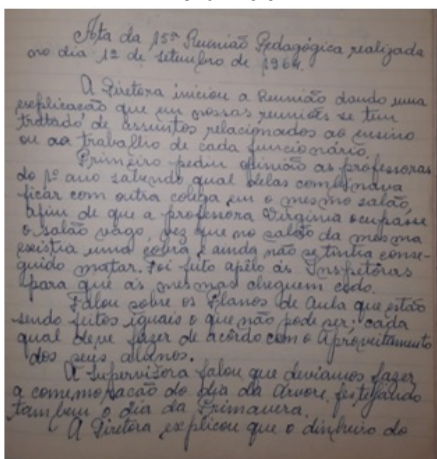 Ata da 15ª Reunião Pedagógica realizada
no dia 12 de setembro de 1964.
A Diretora iniciou a Reunião dando uma
explicação que em nossas reuniões se tem
tratado de assuntos relacionados ao ensino
ou ao trabalho de cada funcionário.
Primeiro pediu opinião as professoras
do 1º ano sabendo qual delas combinava
ficar com outra colega em o mesmo salão,
afim de que a professora Virgínia ocupasse
o salão vago, vez que no salão da mesma
existia uma cobra e ainda não se tinha conse-
guido matar. Foi feito apêlo às Inspetoras
para que as mesmas cheguem cedo.
Falou sobre os Planos de Aula que estão
sendo feitos iguais o que não pode ser; cada
qual deve fazer de acôrdo com o aproveitamento
dos seus alunos.
A Supervisora falou que devíamos fazer
a comemoração do dia da Arvore, festejando
tambem o dia da Primavera.
A Diretora explicou que o dinheiro do